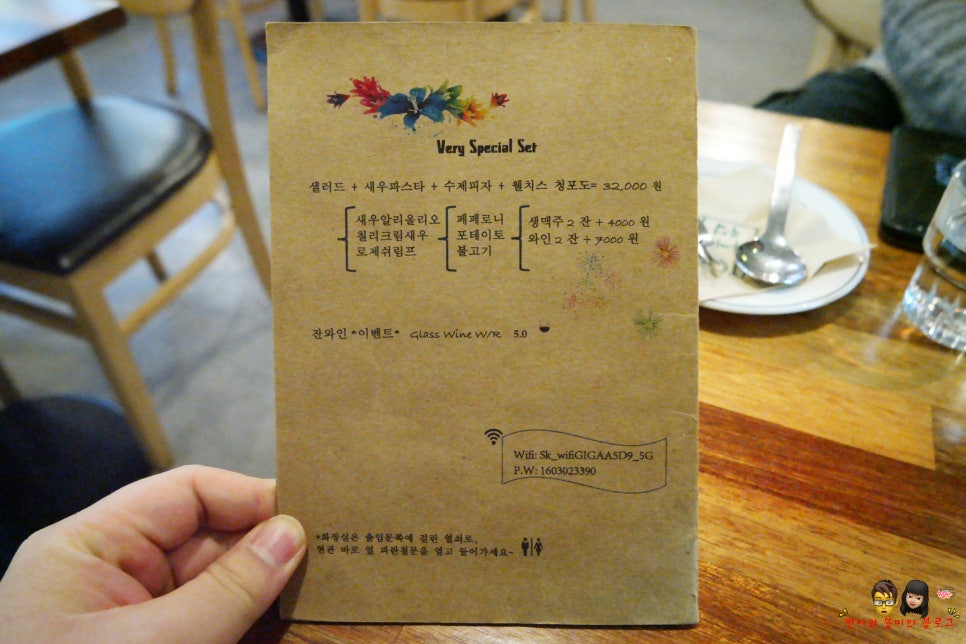 Very Special Set
샐러드 + 새우파스타 + 수제피자 + 웰치스 청포도= 32,000 원
새우알리올리오 페페로니 생맥주 2 잔 + 4000 원
칠리크림새우 포테이토 와인 2 잔 + 7000 원
로제쉬림프 불고기
잔와인 *이벤트* Glass Wine W/R 5.0
Wifi: Sk_wifiGIGAA5D9_5G
P.W: 1603023390
*화장실은 출입문쪽에 걸린 열쇠로,
현관 바로 옆 파란철문을 열고 들어가세요~